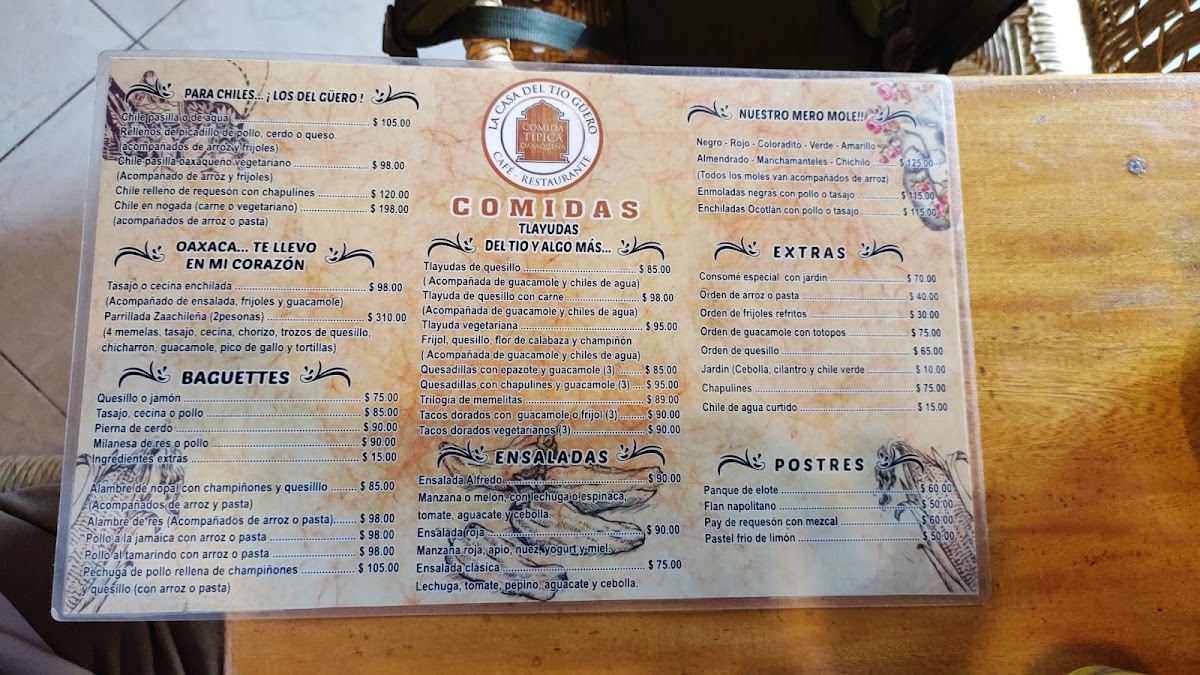 PARA CHILES... ¡ LOS DEL GÜERO !
Chile pasilla o de agua ........ $ 105.00
Rellenos de picadillo de pollo, cerdo o queso.
(acompañados de arroz y frijoles)
Chile pasilla oaxaqueño vegetariano ........ $ 98.00
(Acompañado de arroz y frijoles)
Chile relleno de requesón con chapulines ........ $ 120.00
Chile en nogada (carne o vegetariano) ........ $ 198.00
(acompañados de arroz o pasta)
OAXACA... TE LLEVO
EN MI CORAZÓN
Tasajo o cecina enchilada ........ $ 98.00
(Acompañado de ensalada, frijoles y guacamole)
Parrillada Zaachileña (2pesonas) ........ $ 310.00
(4 memelas, tasajo, cecina, chorizo, trozos de quesillo,
chicharron, guacamole, pico de gallo y tortillas)
BAGUETTES
Quesillo o jamón ........ $ 75.00
Tasajo, cecina o pollo ........ $ 85.00
Pierna de cerdo ........ $ 90.00
Milanesa de res o pollo ........ $ 90.00
Ingredientes extras ........ $ 15.00
Alambre de nopal con champiñones y quesilllo ........ $ 85.00
(Acompañados de arroz y pasta)
Alambre de res (Acompañados de arroz o pasta)........ $ 98.00
Pollo a la jamaica con arroz o pasta ........ $ 98.00
Pollo al tamarindo con arroz o pasta ........ $ 98.00
Pechuga de pollo rellena de champiñones ........ $ 105.00
y quesillo (con arroz o pasta)
LA CASA DEL TIO GÜERO
COMIDA
TIPICA
OAXAQUEÑA
CAFE - RESTAURANTE
COMIDAS
TLAYUDAS
DEL TIO Y ALGO MÁS...
Tlayudas de quesillo ........ $ 85.00
( Acompañada de guacamole y chiles de agua)
Tlayuda de quesillo con carne ........ $ 98.00
(Acompañada de guacamole y chiles de agua)
Tlayuda vegetariana ........ $ 95.00
Frijol, quesillo, flor de calabaza y champiñón
( Acompañada de guacamole y chiles de agua)
Quesadillas con epazote y guacamole (3) ........ $ 85.00
Quesadillas con chapulines y guacamole (3) .... $ 95.00
Trilogía de memelitas ........ $ 89.00
Tacos dorados con guacamole o frijol (3) ........ $ 90.00
Tacos dorados vegetarianos (3) ........ $ 90.00
ENSALADAS
Ensalada Alfredo ........ $ 90.00
Manzana o melón, con lechuga o espinaca,
tomate, aguacate y cebolla.
Ensalada roja ........ $ 90.00
Manzana roja, apio, nuez, yogurt y miel.
Ensalada clásica ........ $ 75.00
Lechuga, tomate, pepino, aguacate y cebolla.
NUESTRO MERO MOLE!!
Negro - Rojo - Coloradito - Verde - Amarillo
Almendrado - Manchamanteles - Chichilo ........ $ 125.00
(Todos los moles van acompañados de arroz)
Enmoladas negras con pollo o tasajo ........ $ 115.00
Enchiladas Ocotlán con pollo o tasajo ........ $ 115.00
EXTRAS
Consomé especial con jardin ........ $ 70.00
Orden de arroz o pasta ........ $ 40.00
Orden de frijoles refritos ........ $ 30.00
Orden de guacamole con totopos ........ $ 75.00
Orden de quesillo ........ $ 65.00
Jardin (Cebolla, cilantro y chile verde ........ $ 10.00
Chapulines ........ $ 75.00
Chile de agua curtido ........ $ 15.00
POSTRES
Panque de elote ........ $ 60.00
Flan napolitano ........ $ 50.00
Pay de requesón con mezcal ........ $ 60.00
Pastel frio de limón ........ $ 50.00